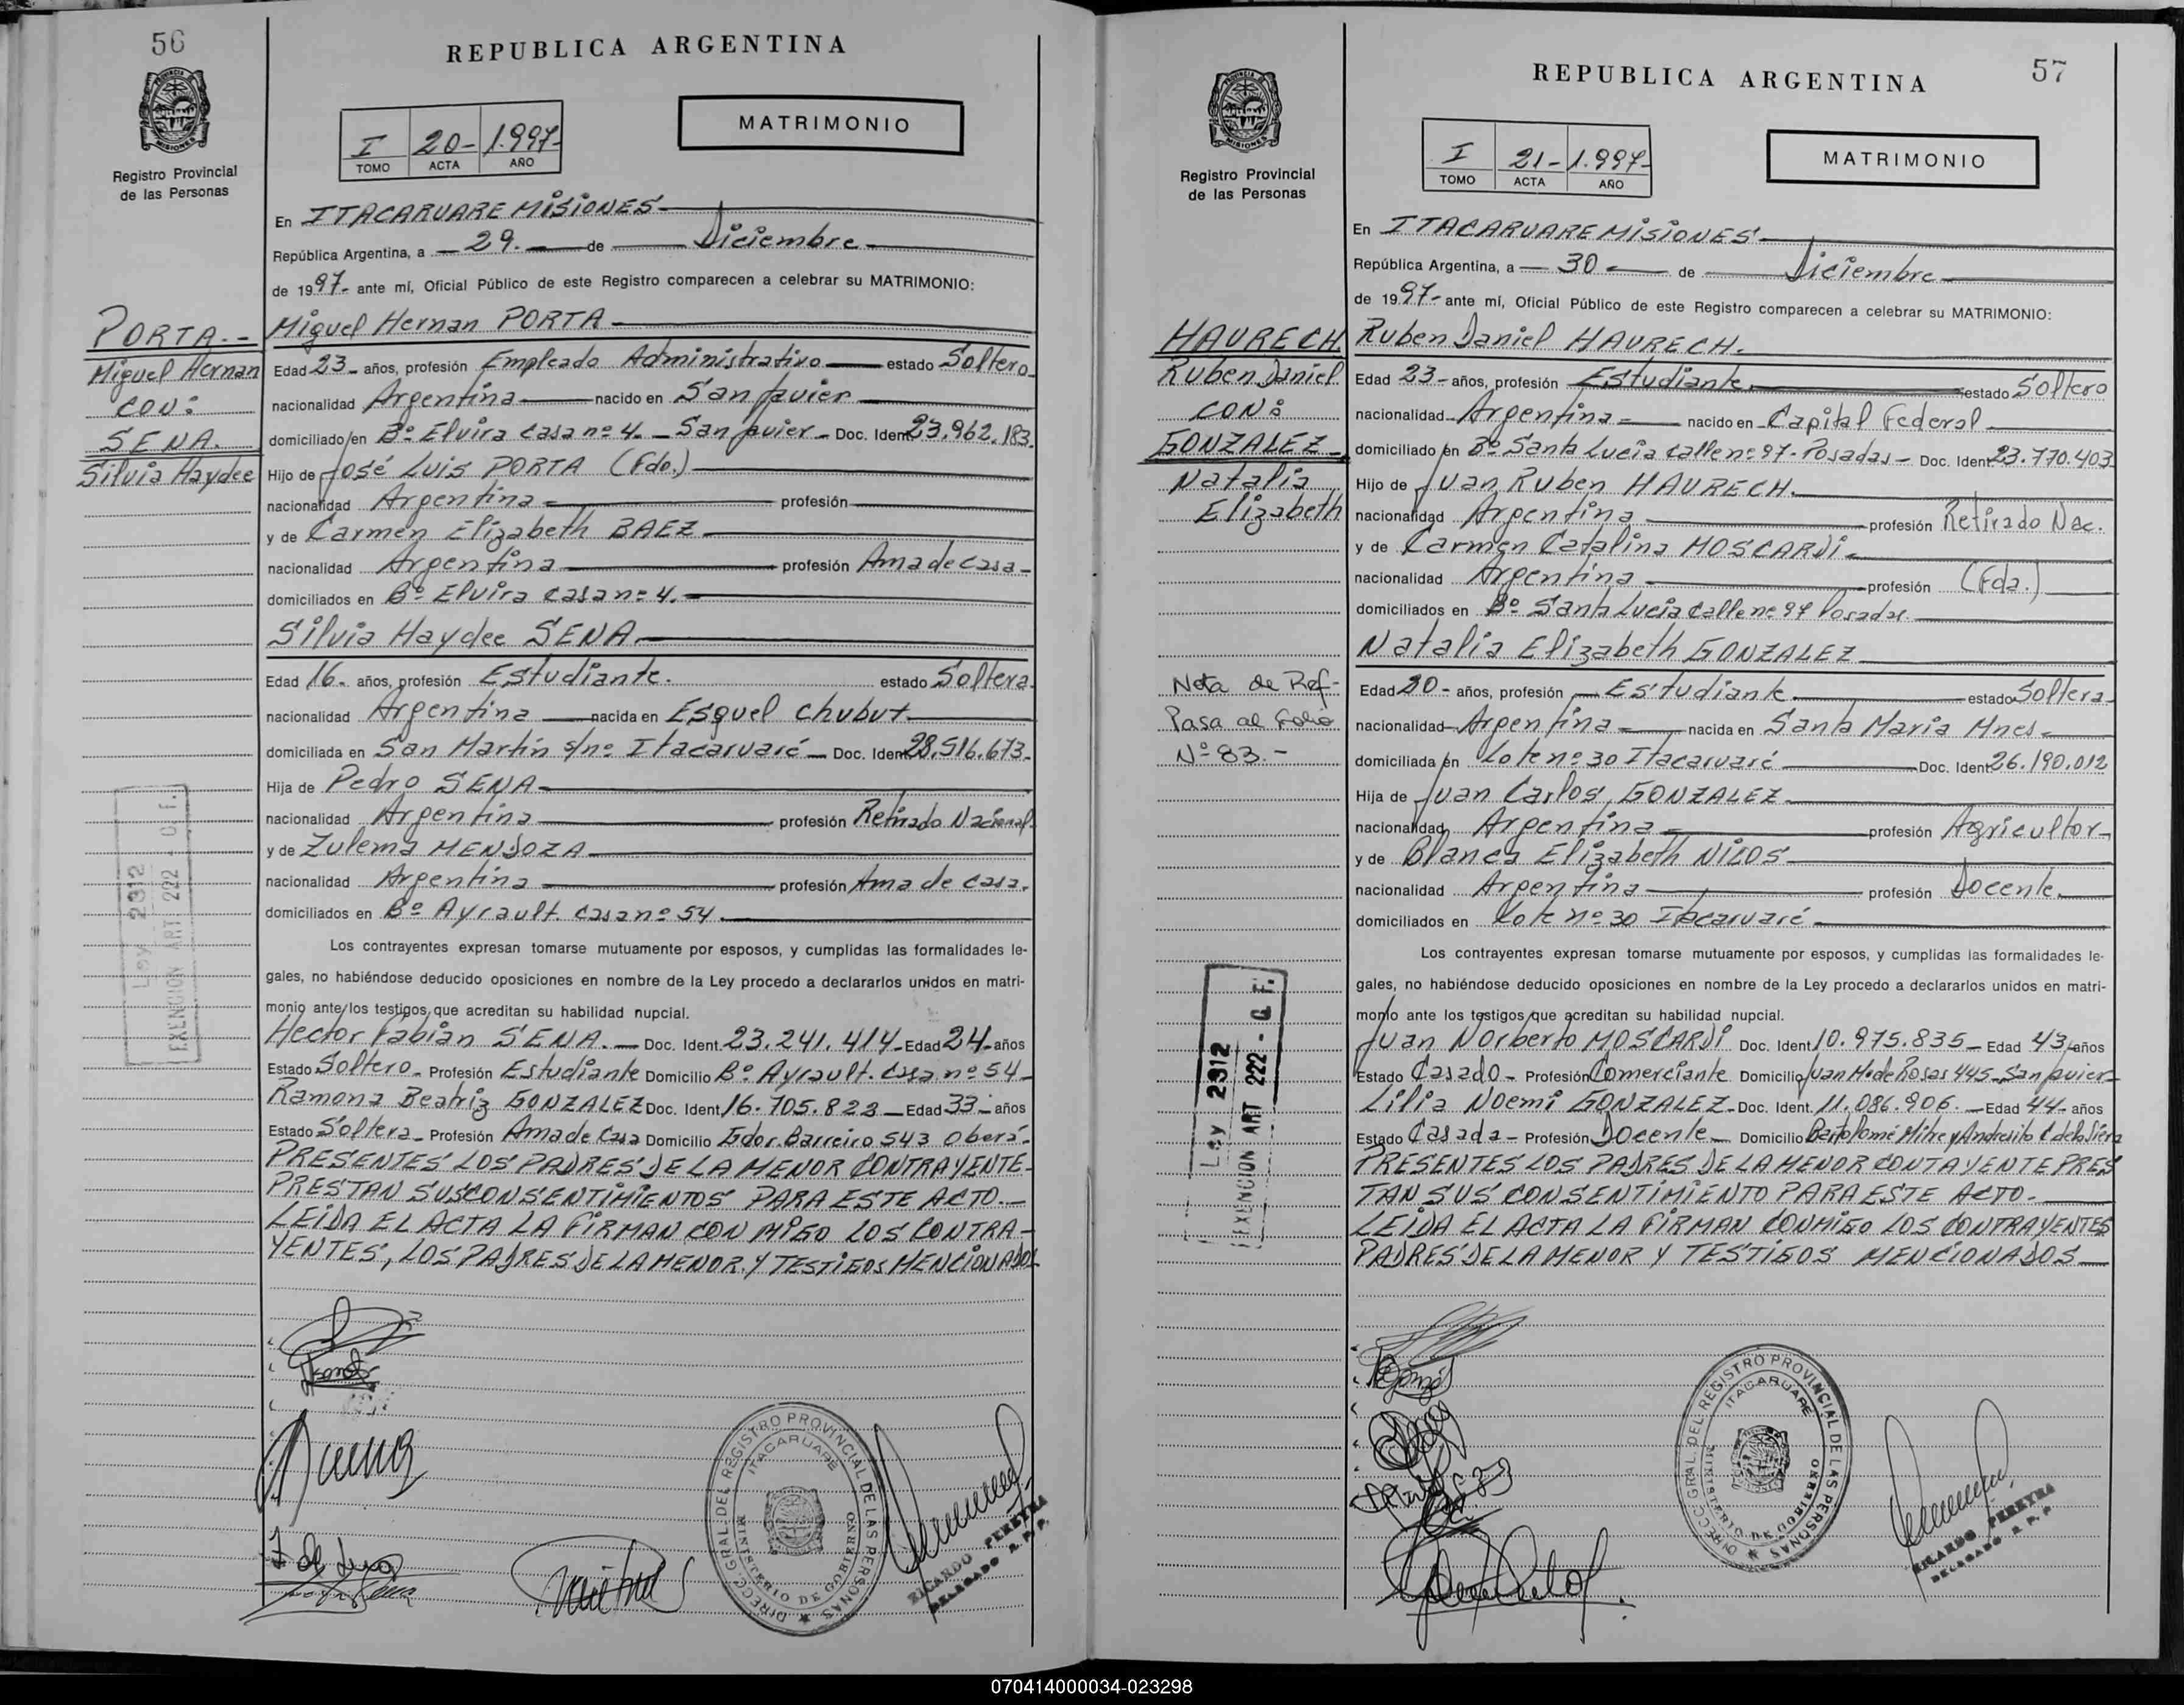 56
REPUBLICA ARGENTINA
PROVINCIA DE
MISIONES
Registro Provincial
de las Personas
I 20- 1.997-
TOMO ACTA AÑO
MATRIMONIO
En ITACARUARE MISIONES
República Argentina, a 29. de Diciembre
de 1997- ante mí, Oficial Público de este Registro comparecen a celebrar su MATRIMONIO:
PORTA.-
Miguel Hernan
CON:
SENA.
Silvia Haydee
Miguel Hernan PORTA
Edad 23- años, profesión Empleado Administrativo estado Soltero
nacionalidad Argentina nacido en San Javier
domiciliado en Bº Elvira casa nº 4. - San Javier - Doc. Ident. 23.962.183.
Hijo de José Luis PORTA (Fdo.)
nacionalidad Argentina profesión
y de Carmen Elizabeth BAEZ
nacionalidad Argentina profesión Ama de casa-
domiciliados en Bº Elvira casa nº 4.
Silvia Haydee SENA
Edad 16- años, profesión Estudiante. estado Soltera.
nacionalidad Argentina nacida en Esquel Chubut
domiciliada en San Martín s/nº Itacaruaré - Doc. Ident. 28.516.673.
Hija de Pedro SENA
nacionalidad Argentina profesión Retirado Nacional
y de Zulema MENDOZA
nacionalidad Argentina profesión Ama de casa.
domiciliados en Bº Ayrault. casa nº 54.
Los contrayentes expresan tomarse mutuamente por esposos, y cumplidas las formalidades le-
gales, no habiéndose deducido oposiciones en nombre de la Ley procedo a declararlos unidos en matri-
monio ante los testigos que acreditan su habilidad nupcial.
Hector Fabián SENA. - Doc. Ident. 23.241.414- Edad 24- años
Estado Soltero- Profesión Estudiante Domicilio Bº Ayrault. casa nº 54-
Ramona Beatriz GONZALEZ Doc. Ident. 16.705.823 - Edad 33- años
Estado Soltera- Profesión Ama de Casa Domicilio Gdor. Barreiro 543 Oberá-
PRESENTES LOS PADRES DE LA MENOR CONTRAYENTE
PRESTAN SUS CONSENTIMIENTOS PARA ESTE ACTO.-
LEIDA EL ACTA LA FIRMAN CON MIGO LOS CONTRA-
YENTES, LOS PADRES DE LA MENOR Y TESTIGOS MENCIONADOS
Ley 2312
EXENCION ART 222 - C.F.
DIRECC. GRAL. DEL REGISTRO PROVINCIAL DE LAS PERSONAS
ITACARUARE
MINISTERIO DE GOBIERNO
RICARDO PEREYRA
DELEGADO R. P. P.
57
REPUBLICA ARGENTINA
PROVINCIA DE
MISIONES
Registro Provincial
de las Personas
I 21- 1.997-
TOMO ACTA AÑO
MATRIMONIO
En ITACARUARE MISIONES
República Argentina, a 30 de Diciembre
de 1997- ante mí, Oficial Público de este Registro comparecen a celebrar su MATRIMONIO:
HAURECH
Ruben Daniel
CON:
GONZALEZ
Natalia
Elizabeth
Nota de Ref-
Pasa al Folio
Nº 83.-
Ruben Daniel HAURECH.
Edad 23- años, profesión Estudiante estado Soltero
nacionalidad Argentina nacido en Capital Federal
domiciliado en Bº Santa Lucia calle nº 97- Posadas - Doc. Ident. 23.770.403
Hijo de Juan Ruben HAURECH.
nacionalidad Argentina profesión Retirado Nac.
y de Carmen Catalina MOSCARDI
nacionalidad Argentina profesión (Fda.)
domiciliados en Bº Santa Lucia calle nº 97 Posadas.
Natalia Elizabeth GONZALEZ
Edad 20- años, profesión Estudiante estado Soltera
nacionalidad Argentina nacida en Santa Maria Mnes-
domiciliada en Lote nº 30 Itacaruaré Doc. Ident. 26.190.012
Hija de Juan Carlos GONZALEZ
nacionalidad Argentina profesión Agricultor
y de Blanca Elizabeth NILOS
nacionalidad Argentina profesión Docente
domiciliados en Lote nº 30 Itacaruaré
Los contrayentes expresan tomarse mutuamente por esposos, y cumplidas las formalidades le-
gales, no habiéndose deducido oposiciones en nombre de la Ley procedo a declararlos unidos en matri-
monio ante los testigos que acreditan su habilidad nupcial.
Juan Norberto MOSCARDI Doc. Ident. 10.975.835- Edad 43 años
Estado Casado- Profesión Comerciante Domicilio Juan M. de Rosas 445- San Javier
Lilia Noemi GONZALEZ- Doc. Ident. 11.086.906. - Edad 44- años
Estado Casada- Profesión Docente Domicilio Bartolomé Mitre y Andresito C de la Siera
PRESENTES LOS PADRES DE LA MENOR CONTAYENTE PRES
TAN SUS CONSENTIMIENTO PARA ESTE ACTO.
LEIDA EL ACTA LA FIRMAN CONMIGO LOS CONTRAYENTES
PADRES DE LA MENOR Y TESTIGOS MENCIONADOS
Ley 2312
EXENCION ART 222 - C.F.
DIRECC. GRAL. DEL REGISTRO PROVINCIAL DE LAS PERSONAS
ITACARUARE
MINISTERIO DE GOBIERNO
RICARDO PEREYRA
DELEGADO R. P. P.
070414000034-023298